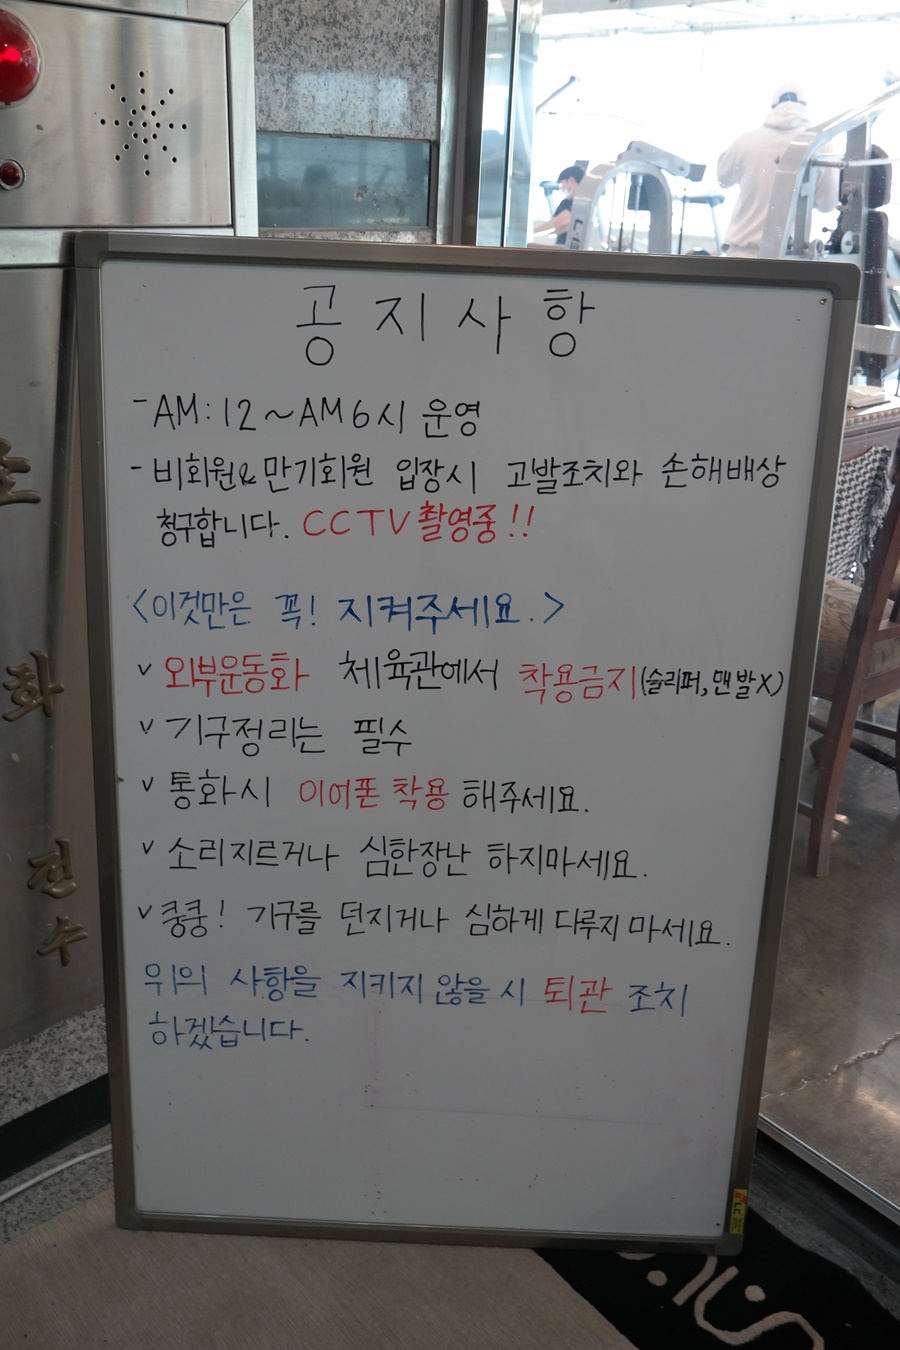 공지사항
- AM:12~AM6시 운영
- 비회원&만기회원 입장시 고발조치와 손해배상
청구합니다. CCTV촬영중!!
<이것만은 꼭! 지켜주세요.>
v 외부운동화 체육관에서 착용금지(슬리퍼,맨발X)
v 기구정리는 필수
v 통화시 이어폰 착용 해주세요.
v 소리지르거나 심한장난 하지마세요.
v 쿵쿵! 기구를 던지거나 심하게 다루지 마세요.
위의 사항을 지키지 않을 시 퇴관 조치
하겠습니다.
화
전
수